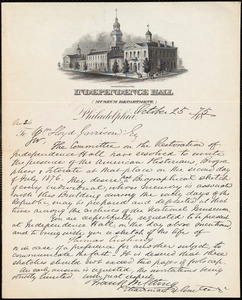 INDEPENDENCE HALL
(MUSEUM DEPARTMENT)
Philadelphia, October 25 1875
To Wm Lloyd Garrison Esq
Sir
The Committee on the Restoration of
Independence Hall have resolved to invite
the presence of the American Historians, Biogra
phers & Literati at that place on the second day
of July 1876. They desire that Biographical sketch
of every individual, whose memory is
with this Building during the early days of the
Republic, may be prepared and deposited at that
time among the archives of our National Museum.
You are respectfully requested to present
at Independence Hall, on the day above mentioned
and to bring with you a sketch of the life of
in case of a preference for another subject to
communicate the fact. It is desired that these
sketches should not exceed two pages of foolscap
An early answer is requested, the invitations being
strictly limited. Very respectfully
Frank M. Etting
Chairman of Committee